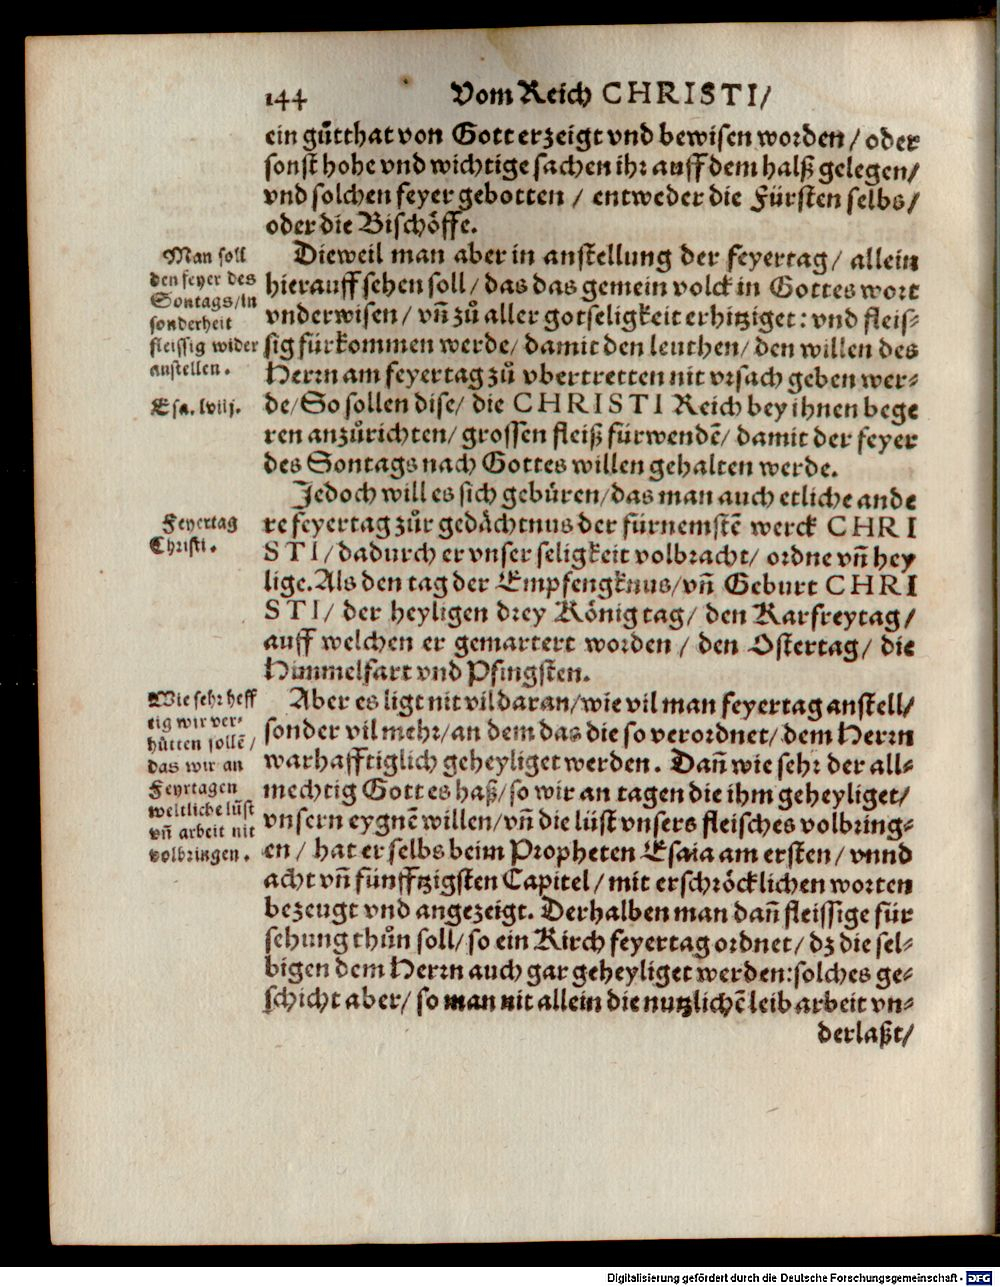 144 Vom Reich CHRISTI/
ein gůtthat von Gott erzeigt vnd bewisen worden / oder
sonst hohe vnd wichtige sachen ihr auff dem halß gelegen/
vnd solchen feyer gebotten / entweder die Fürsten selbs/
oder die Bischöffe.
Man soll
den feyer des
Sontags/in
sonderheit
fleissig wider
anstellen.
Esa. lviij.
Dieweil man aber in anstellung der feyertag/ allein
hierauff sehen soll/ das das gemein volck in Gottes wort
vnderwisen/ vñ zů aller gotseligkeit erhitziget: vnd fleis-
sig fürkommen werde/ damit den leuthen/ den willen des
Herrn am feyertag zů vbertretten nit vrsach geben wer-
de/ So sollen dise/ die CHRISTI Reich bey ihnen bege
ren anzůrichten/ grossen fleiß fürwendē/ damit der feyer
des Sontags nach Gottes willen gehalten werde.
Feyertag
Christi.
Jedoch will es sich gebüren/das man auch etliche ande
re feyertag zůr gedächtnus der fürnemstē werck CHRI
STI/dadurch er vnser seligkeit volbracht/ ordne vñ hey
lige. Als den tag der Empfengknus/vñ Geburt CHRI
STI/ der heyligen drey König tag/ den Karfreytag/
auff welchen er gemartert worden / den Ostertag/ die
Himmelfart vnd Pfingsten.
Wie sehr heff
tig wir ver-
hütten sollē /
das wir an
Feyrtagen
weltliche lüst
vñ arbeit nit
volbringen.
Aber es ligt nit vil daran/wie vil man feyertag anstell/
sonder vil mehr/an dem das die so verordnet/ dem Herrn
warhafftiglich geheyliget werden. Dañ wie sehr der all-
mechtig Gott es haß/so wir an tagen die ihm geheyliget/
vnsern eygnē willen/vñ die lüst vnsers fleisches volbring-
en / hat er selbs beim Propheten Esaia am ersten / vnnd
acht vñ fünfftzigsten Capitel / mit erschröcklichen worten
bezeugt vnd angezeigt. Derhalben man dañ fleissige für
sehung thůn soll/ so ein Kirch feyertag ordnet/ dz die sel-
bigen dem Herrn auch gar geheyliget werden: solches ge-
schicht aber/ so man nit allein die nutzlichē leib arbeit vn-
derlaßt/
Digitalisierung gefördert durch die Deutsche Forschungsgemeinschaft - DFG